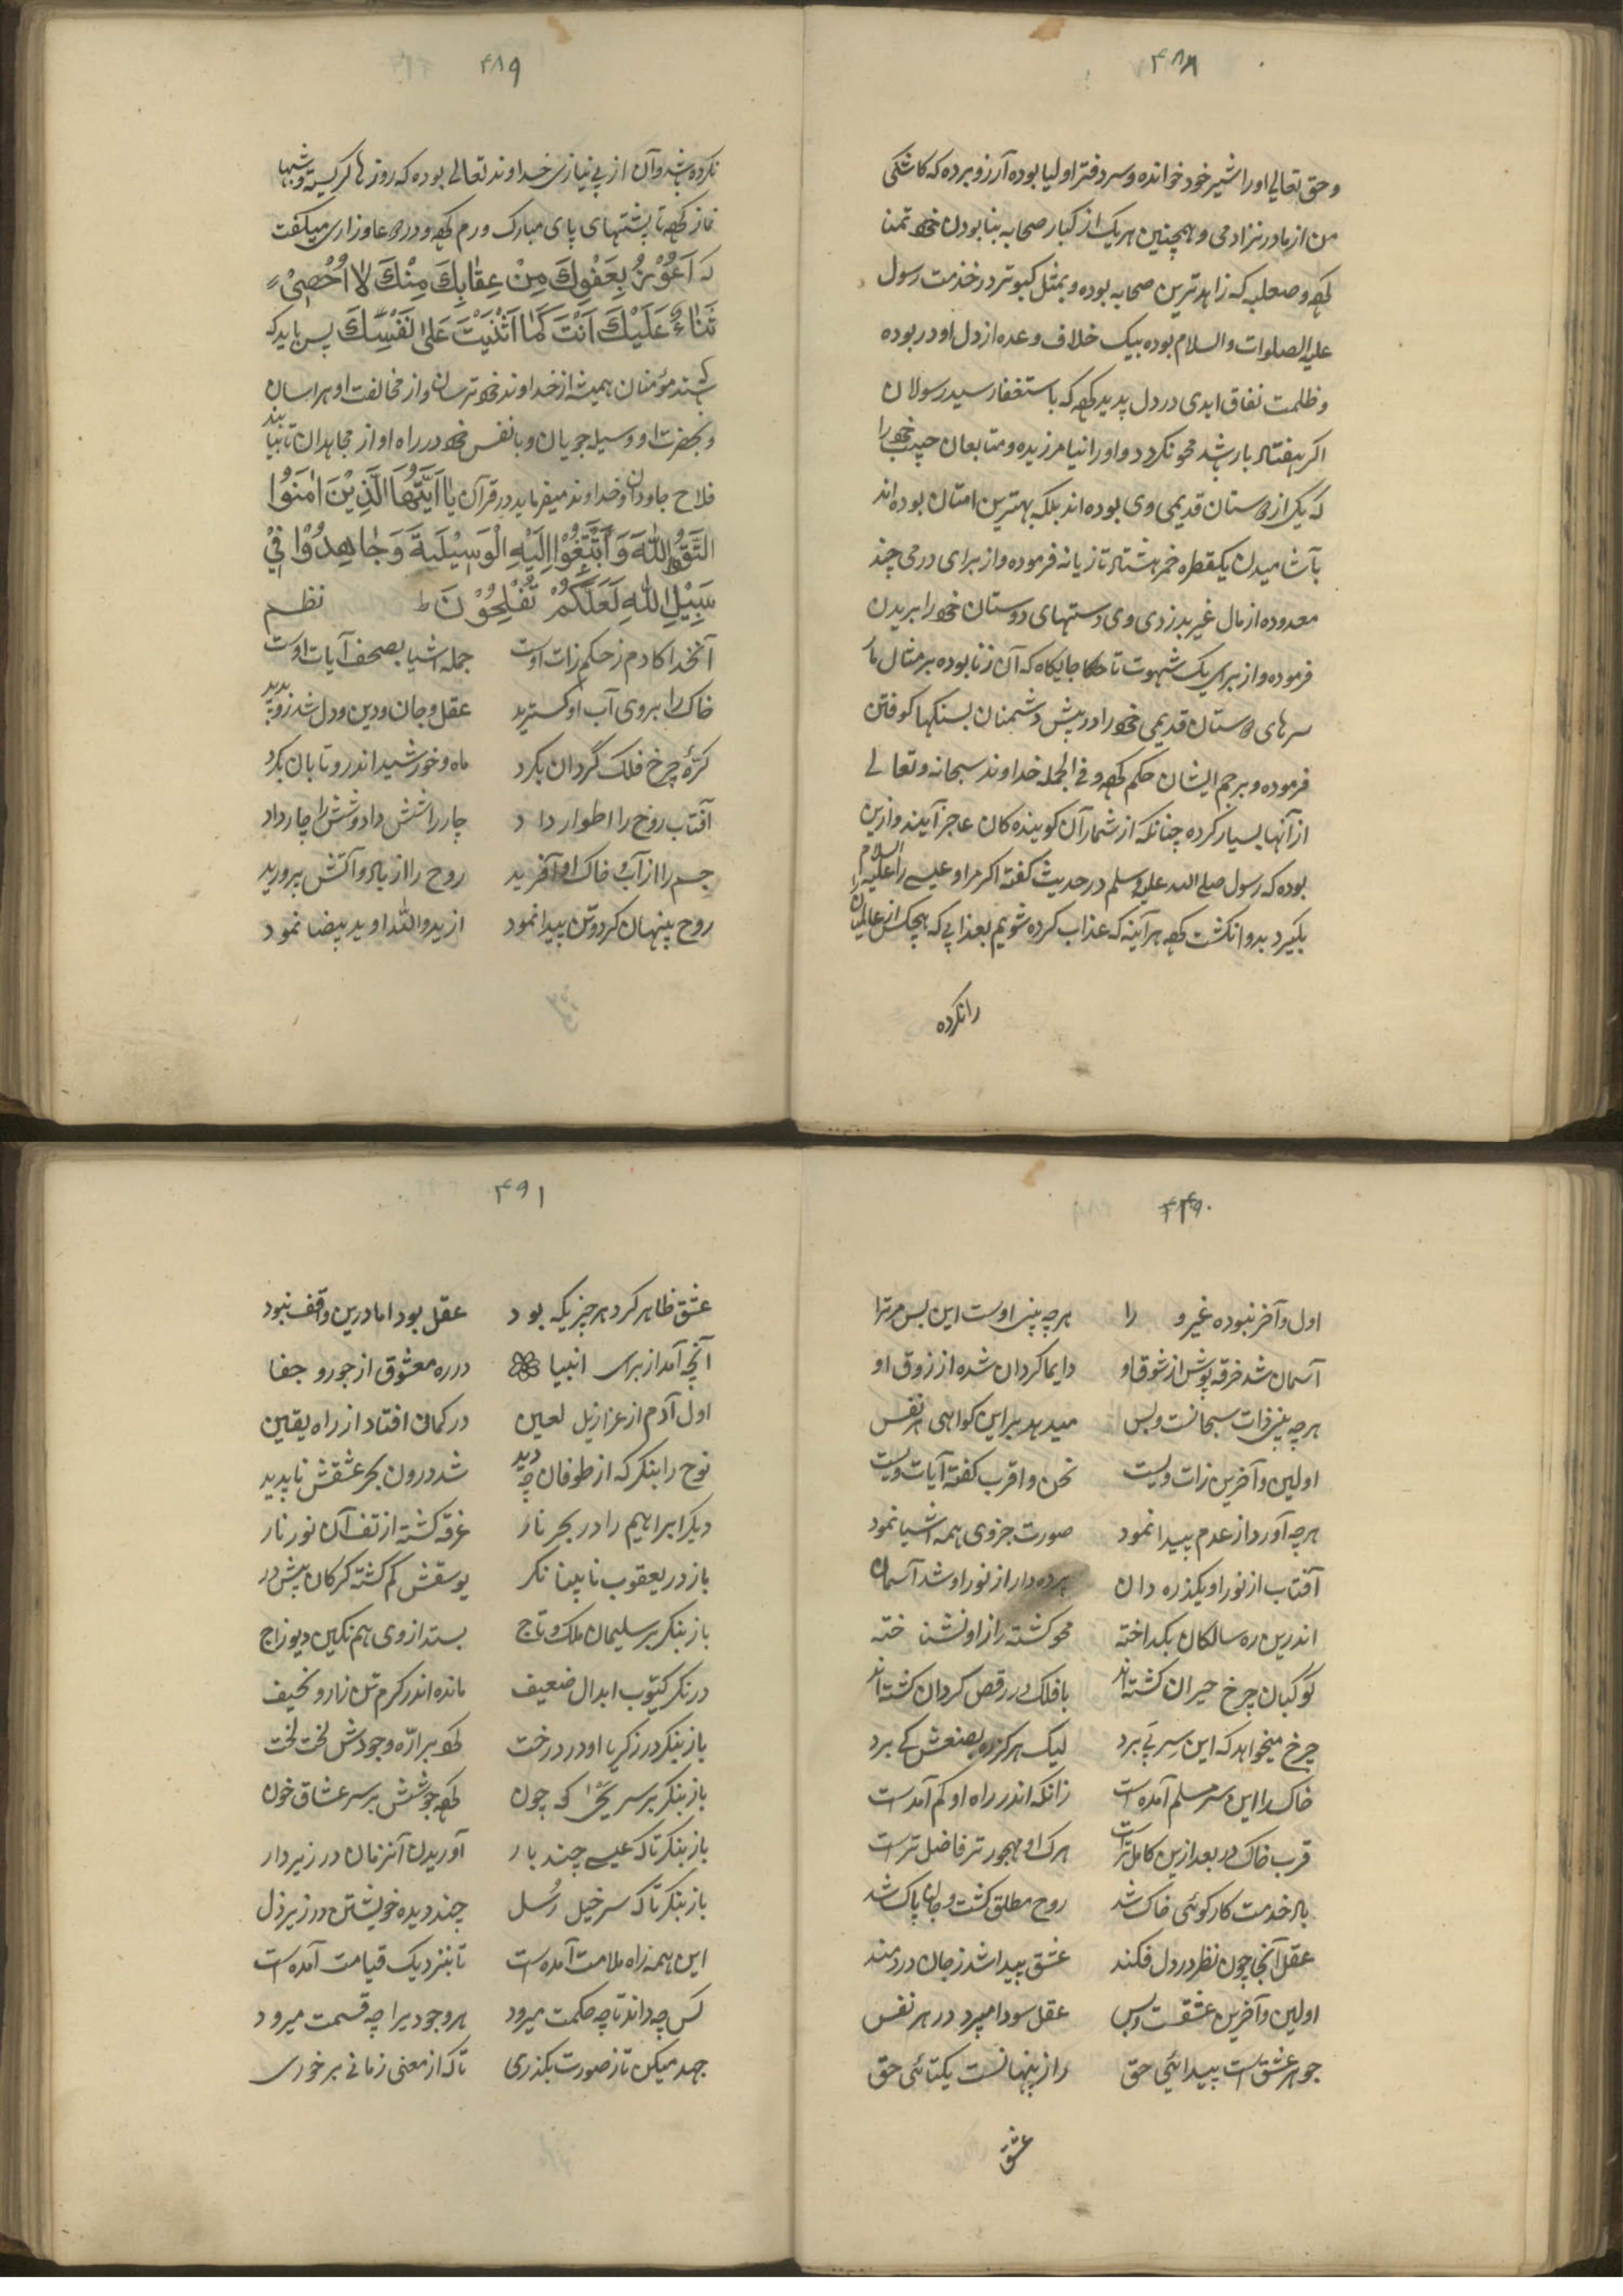 ۴۸۸
وحق تعالی اورا شیر خود خوانده و سر دفتر اولیا بوده آرزو برده که کاشکی
من از مادر نزادمی و همچنین هریک از کبار صحابه بنا بودن خود تمنا
کرده و صعلبه که زاهدترین صحابه بوده و بمثل کبوتر در خدمت رسول
علیه الصلوات والسلام بوده بیک خلاف وعده از دل او در بوده
و ظلمت نفاق ابدی در دل پدید کرده که باستغفار سید رسولان
اکر هفتاد بار شد محو نکردد و اورا نیامرزیده و متابعان حبیب خود را
که یک از دوستان قدیمی وی بوده اند بلکه بهترین امتان بوده اند
بآشامیدن یکقطره خمر هشتاد تازیانه فرموده و از برای درمی چند
معدوده از مال غیر بدزدی وی دستهای دوستان خود را بریدن
فرموده و از برای یک شهوت تا جایکاه که آن زنا بوده بر مثال مار
سرهای دوستان قدیمی خود را در پیش دشمنان بسنکها کوفتن
فرموده و برجم ایشان حکم کرده و فی الجمله خداوند سبحانه و تعالی
از آنها بسیار کرده چنانکه از شمار آن کوینده کان عاجز آیند و ازین
بوده که رسول صلی الله علیه و سلم در حدیث کفته اکر مرا و عیسی را علیه السلام
بکیرد بدو انکشت کرده هر آینه که عذاب کرده شویم بعذابی که هیچکس از عالمیان را
را نکرده
۴۸۹
نکرده شد و آن از بی نیازی خداوند تعالی بوده که روزها کریسته و شبها
نماز کرده تا پشتهای پای مبارک ورم کرده و در دعا و زاری میکفت
که اَعُوْذُ بِعَفْوِكَ مِنْ عِقٰابِكَ مِنْكَ لاٰ اُحْصِیْ
ثَنٰاءً عَلَیْكَ اَنْتَ كَمٰا اَثْنَیْتَ عَلیٰ نَفْسِكَ پس باید که
باشند مؤمنان همیشه از خداوند خود ترسان و از مخالفت او هراسان
و بحضرت او وسیله جویان و با نفس خود در راه او از مجاهدان تا بیابند
فلاح جاودان و خداوند میفرماید در قرآن یٰا اَیُّهَا الَّذِیْنَ اٰمَنُوا
اتَّقُوا اللّٰهَ وَ ابْتَغُوْا اِلَیْهِ الْوَسِیْلَةَ وَ جٰاهِدُوْا فِیْ
سَبِیْلِ اللّٰهِ لَعَلَّكُمْ تُفْلِحُوْنَ ط نظم
آنخدا کادم ز حکم زات اوست جمله اشیا بصحف آیات اوست
خاک را بر روی آب او کسترید عقل و جان و دین و دل شد زو پدید
کرّهٔ چرخ فلک گردان بکرد ماه و خورشید اندرو تابان بکرد
آفتاب روح را اطوار داد چار را شش داد و شش را چار داد
جسم را از آب و خاک او آفرید روح را از باد و آتش پرورید
روح پنهان کرد و تن پیدا نمود از ید و الله او ید بیضا نمود
۴۹۰
اول و آخر نبوده غیر و را هرچه بینی اوست این بس مر ترا
آسمان شد خرقه پوش از شوق او دایما کردان شده از زوق او
هرچه بینی ذات سبحانست و بس میدهد بر این کواهی هر نفس
اولین و آخرین زات ویست نحن و اقرب کفته آیات ویست
هرچه آورد از عدم پیدا نمود صورت جزوی همه اشیا نمود
آفتاب از نور او یکذره دان پرده دار از نور او شد آسمان
اندرین ره سالکان بکداخته محو کشته راز او نشناخته
کوکبان چرخ حیران کشته اند با فلک در رقص کردان کشته اند
چرخ میخواهد که این سِر پَی برد لیک هرکز ره بصنعش کے برد
خاک را این سِر مسلم آمده است زانکه اندر راه او کم آمدست
قرب خاک در بعد ازین کامل تر است هرکه او مهجورتر فاضل ترست
باد خدمت کار کوئی خاک شد روح مطلق کشت و جان پاک شد
عقل آنجا چون نظر در دل فکند عشق پیدا شد ز جان دردمند
اولین و آخرین عشقست و بس عقل سودا میپرد در هر نفس
جوهر عشق است پیدائی حق راز پنهانست یکتائی حق
عشق
۴۹۱
عشق ظاهر کرد هر چیزیکه بود عقل بود اما درین واقف نبود
آنچه آمد از برای انبیا در ره معشوق از جور و جفا
اول آدم از عزازیل لعین در کمان افتاد از راه یقین
نوح را بنکر که از طوفان چه دید شد درون بحر عشقش ناپدید
دیکر ابراهیم را در بحر نار غرقه کشته از تف آن نور نار
باز در یعقوب نابینا نکر یوسفش کم کشته کرکان پیش در
باز بنکر بر سلیمان ملک و تاج بستد از وی هم نکین دیو زاج
در نکر کیّوب ابدال ضعیف مانده اندر کرم تن زار و نحیف
باز بنکر در زکریا او در درخت کرده بر ارّه وجودش لخت لخت
باز بنکر بر سر یحیٰ که چون کرده جوشش بر سر عشاق خون
باز بنکر تاکه عیسی چند بار آوریدن آنزمان در زیر دار
باز بنکر تاکه سر خیل رُسل چند دیده خویشتن در زیر ذل
این همه زاه ملامت آمده است تا بنزدیک قیامت آمده است
کس چه داند تا چه حکمت میرود هر وجودیرا چه قسمت میرود
جهد میکن تا ز صورت بکذری تاکه از معنی زمانی بر خوری